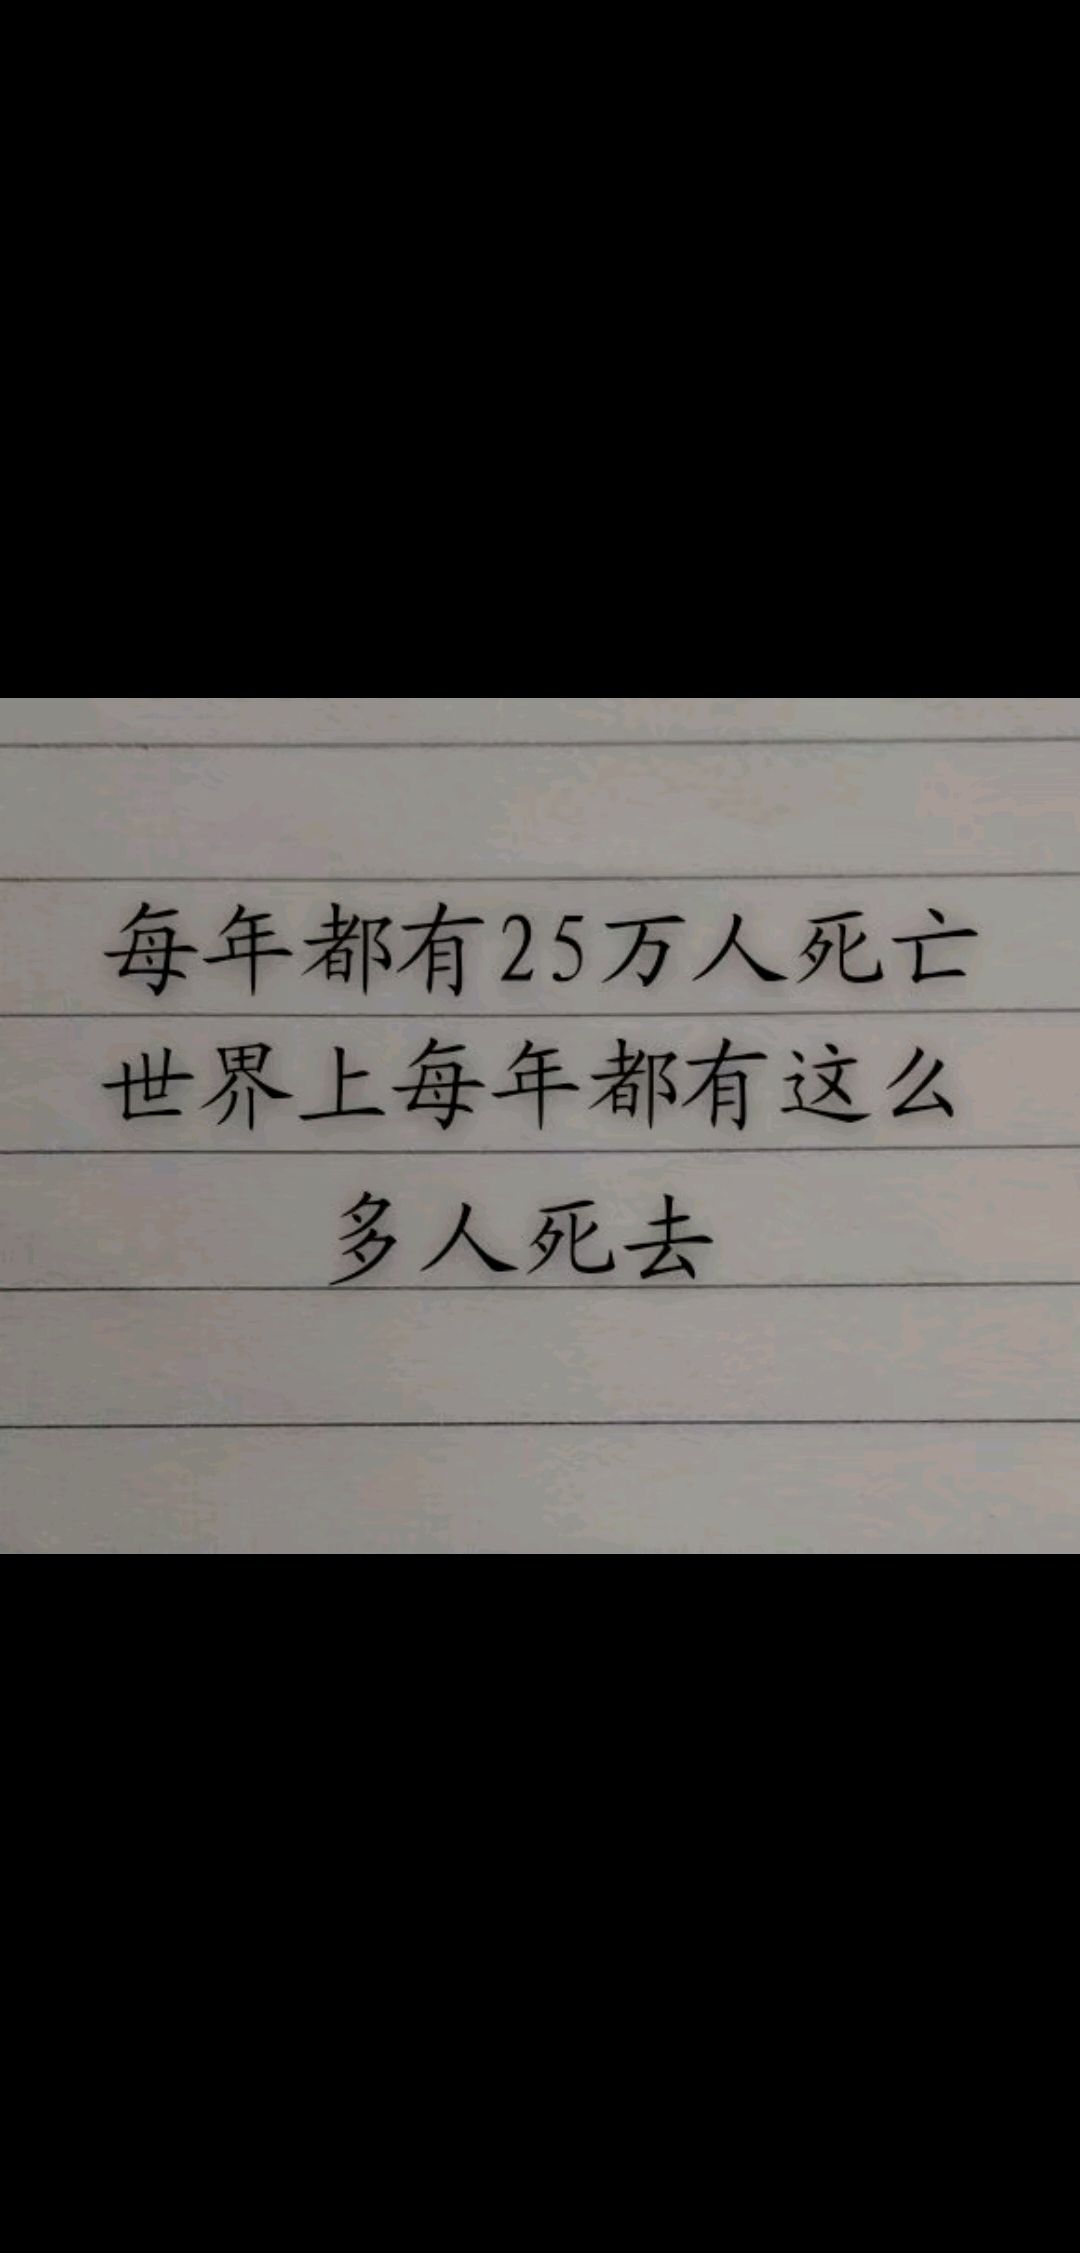 每年都有25万人死亡
世界上每年都有这么
多人死去